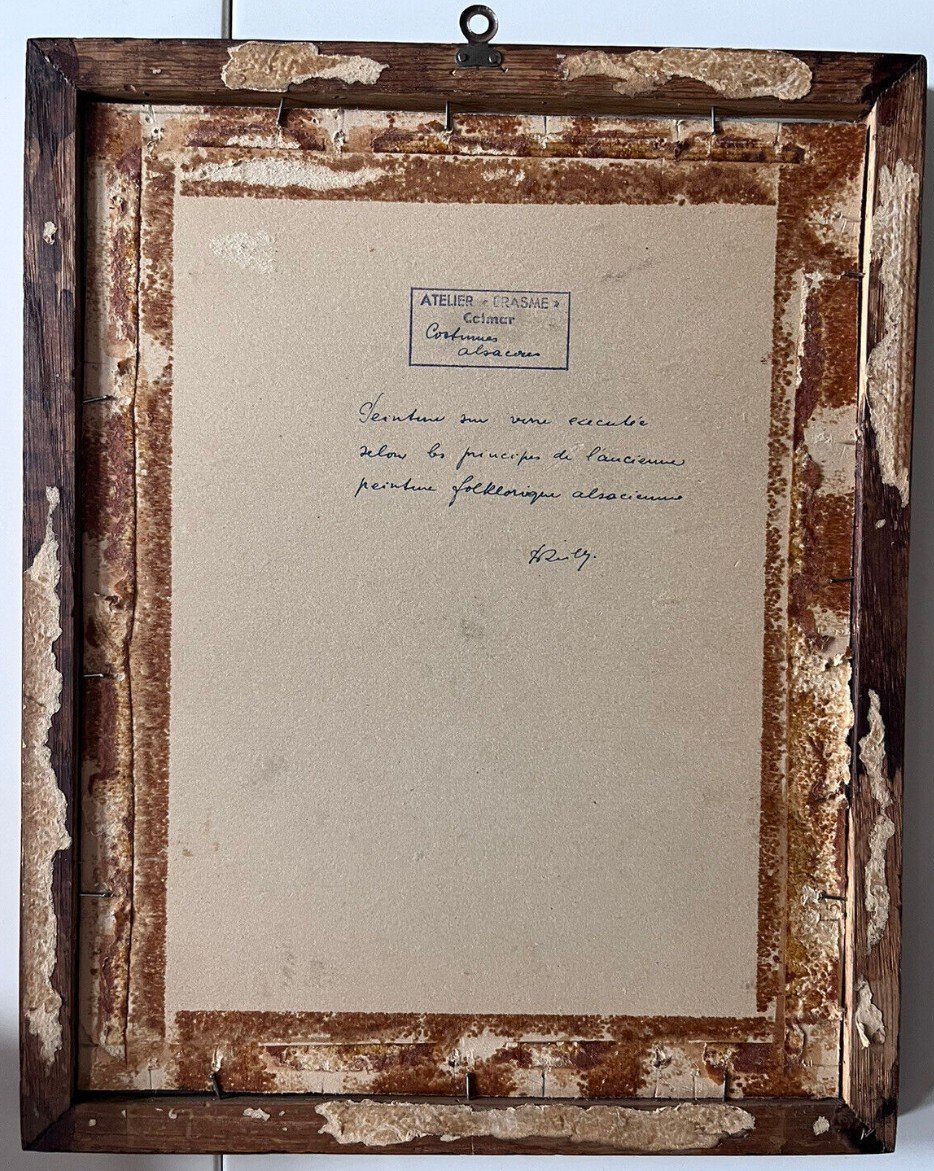 ATELIER « ERASME »
Colmar
Costumes
alsaciens
Peinture sur verre executée
selon les principes de l'ancienne
peinture folklorique alsacienne